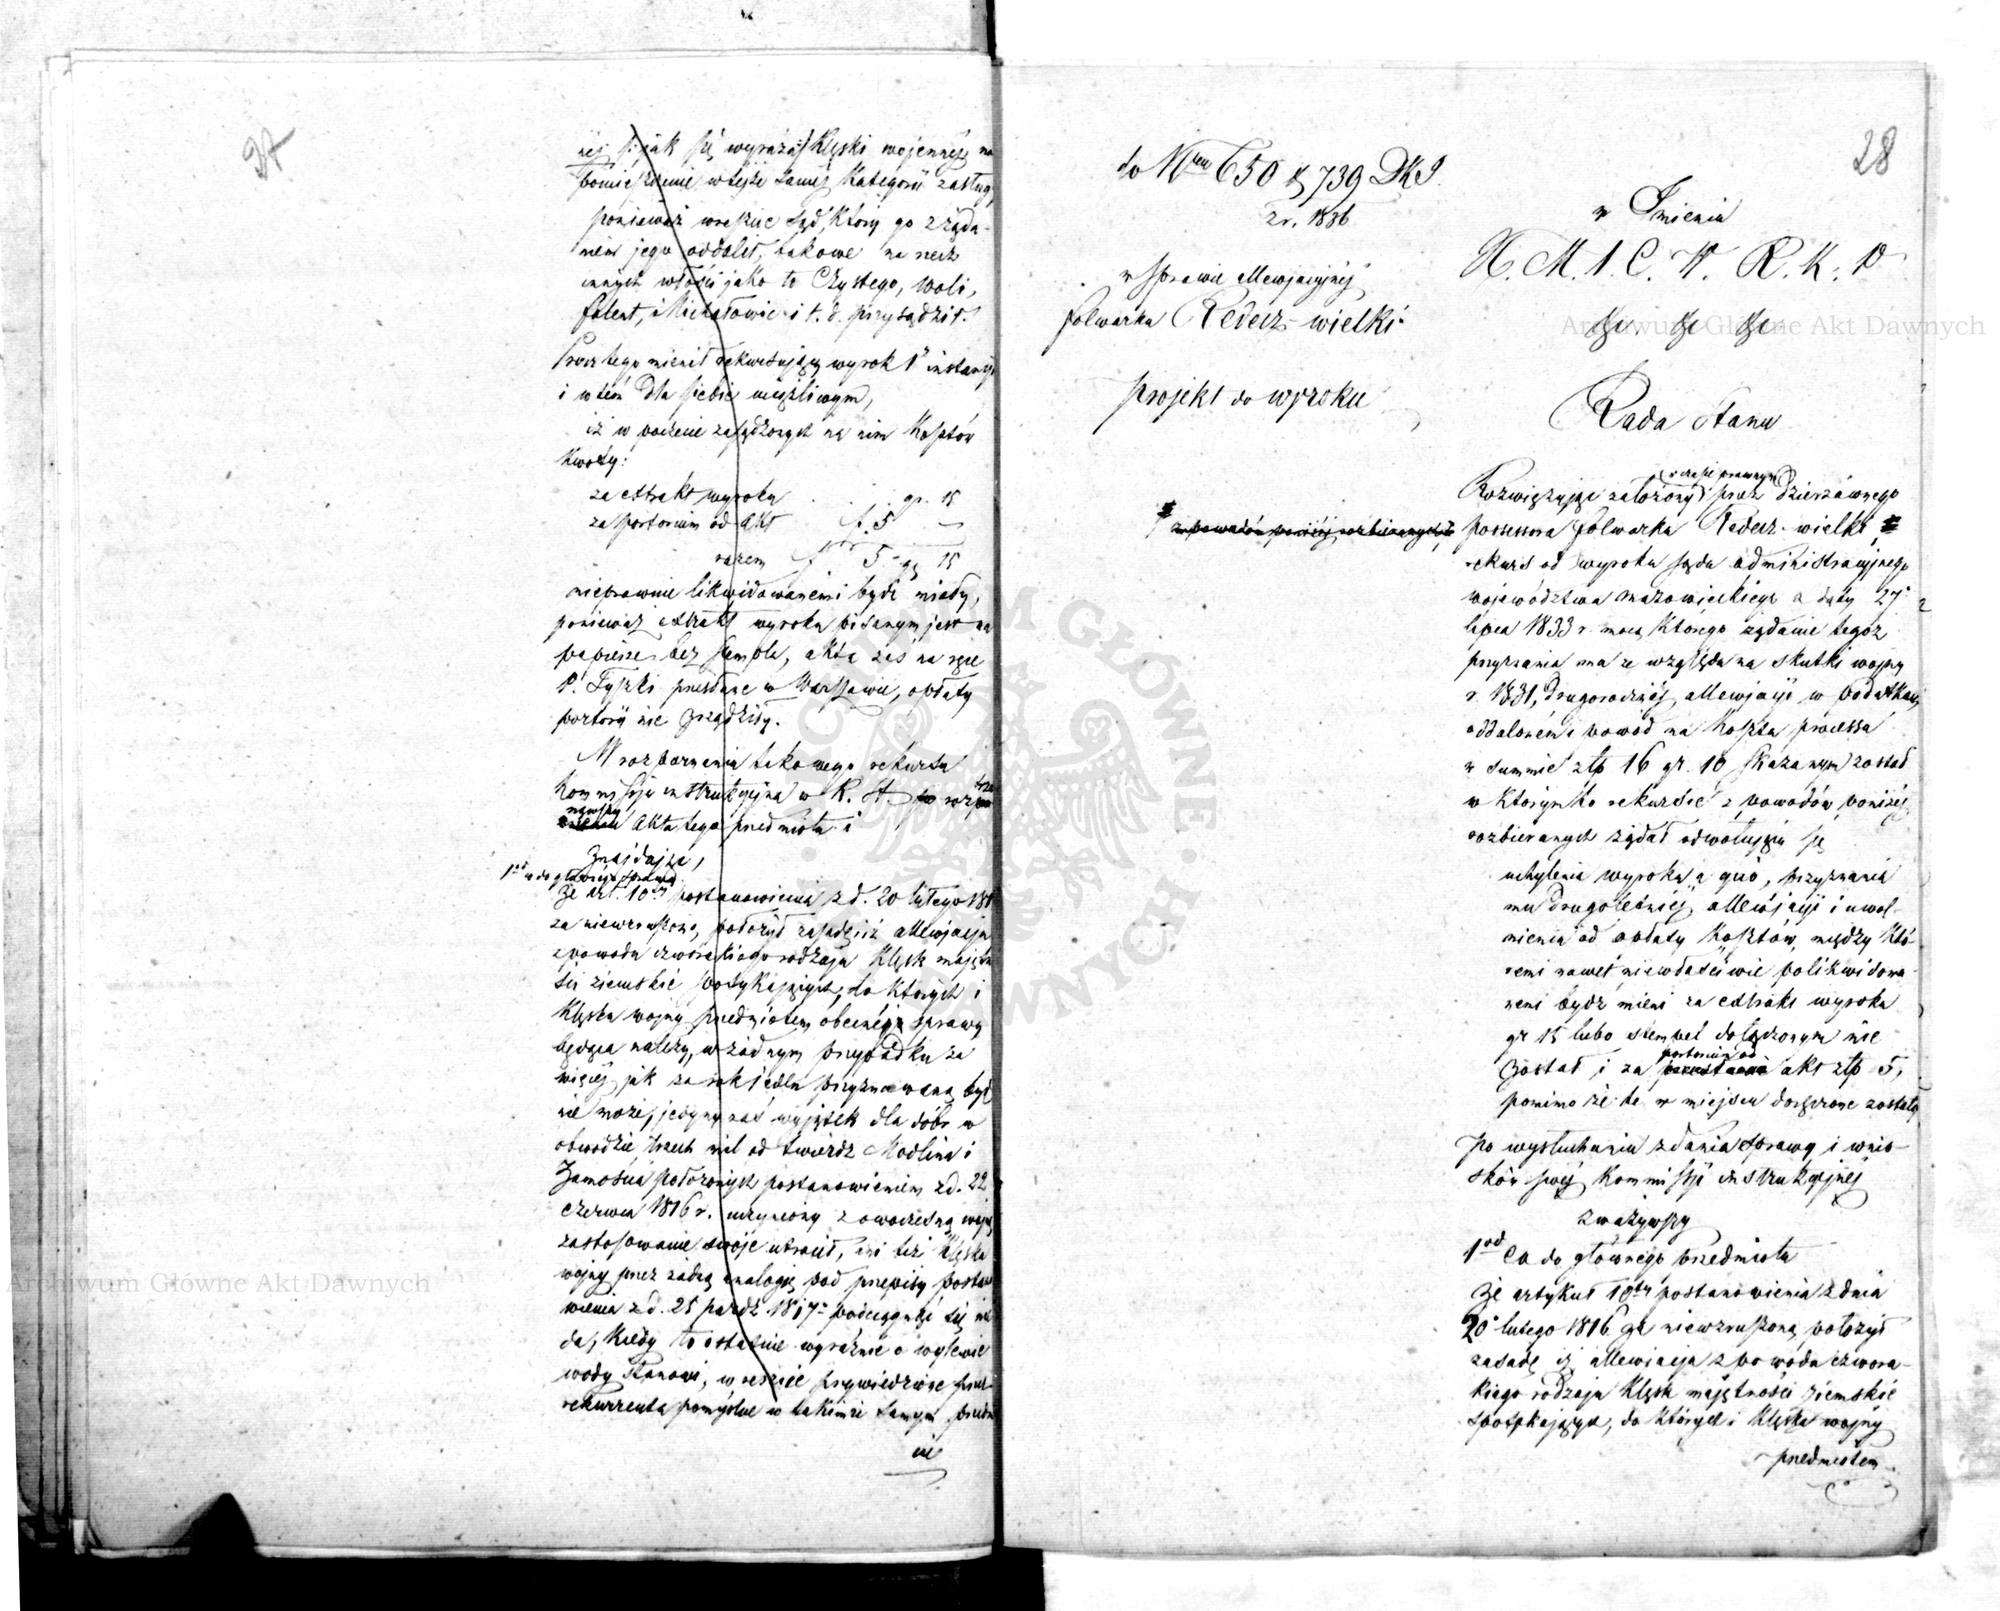 27
tej si jak się wyraża Klęski wojennéj na
pomieszczenie w tejże saméj Kategorii zasług.
ponieważ wreszcie Sąd, który go z żąda-
niem jego oddalił, takowe na rzecz
innych włości jako to Czystego, Woli,
Folent, i Michałowic i t. d. przysądził.
Procz tego mienił rekursujący wyrok 1ej instancyi
i w tém dla siebie uciążliwym,
iż w poczcie zasądzonych na nim Kosztów
Kwoty:
za extrakt wyroku gr. 15
za portorium od akt f. 5 —
razem f. 5 gr 15
nieprawnie likwidowanemi bydź miały,
ponieważ extrakt wyroku pisanym jest na
papierze bez stempla, akta zaś na ręce
P. Tyszki przesłane w Warszawie, opłaty
portorji nie zrządziły.
W rozpoznaniu takowego rekursu
Kommissyja instrukcyjna w R. S.
akta tego przedmiotu i
Znajdując,
1od co do głównéj sprawy
Że art. 10ty postanowienia z d. 20 lutego 181
za niewzruszoną położył zasadę iż allewjacyja
z powodu czworakiego rodzaju Klęsk mająt
ści ziemskie spotykających, do których i
Klęska wojny przedmiotem obecnéj sprawy
będąca należy, w żadnym przypadku za
więcéj jak za rok jeden przyznawaną być
nie może, jedyny zaś wyjątek dla dóbr w
obwodzie trzech mil od twierdz Modlina i
Zamościa położonych postanowieniem z d. 22
czerwca 1816 r. uczyniony z owoczesną wojną
zastosowanie swoje utracił, ani też Klęska
wojny przez żadną analogię pod przepisy postano
wienia z d. 25 paźdź 1817 podciągnąć się nie
da, Kiedy to ostatnie wyraźnie o wylewie
wody stanowi, wreszcie przywiedzione przez
rekurrenta pomyślne w takimże samym przedm
cie
28
do Nrów 650 & 739 DKS.
z r. 1836
w sprawie allewjacyjnéj
folwarku Redecz-wielki
projekt do wyroku
z powodów poniżéj rozbieranych
w Imieniu
N. M. I. C. W. R. K. P
&c &c &c
Rada Stanu
w czasie prawnym
Rozwiązując założony przez Dzierżawnego
possessora folwarku Redecz-wielki,
rekurs od wyroku sądu administracyjnego
województwa mazowieckiego z daty 27
lipca 1833 r. mocą którego żądanie tegoż
przyznania mu ze względu na skutki wojny
r. 1831, drugoroczniéj allewjacyi w podatkach
oddaloném i powod na koszta processu
w summie złp 16 gr. 10 skazanym został
w którymto rekursie z powodów poniżéj
rozbieranych żądał odwołujący się
uchylenia wyroku a quo, przyznania
mu drugoletniéj allewjacyi i uwol-
nienia od opłaty kosztów, między któ-
remi nawet niewłaściwie polikwidowa-
nemi bydź mieni za extrakt wyroku
gr 15 lubo stempel dołączonym nie
portorium od
został i za akt złp 5,
pomimo że te w miejscu doręczone zostały
po wysłuchaniu zdania sprawy i wnio-
sków swéj Kommissyi instrukcyjnéj
zważywszy
1od Co do głównego przedmiotu
Że artykuł 10ty postanowienia z dnia
20 lutego 1816 za niewzruszoną położył
zasadę iż allewiacyja z powodu czwora-
kiego rodzaju Klęsk majętności ziemskie
spotykających, do których i Klęska wojny
przedmiotem
Archiwum Główne Akt Dawnych
Archiwum Główne Akt Dawnych